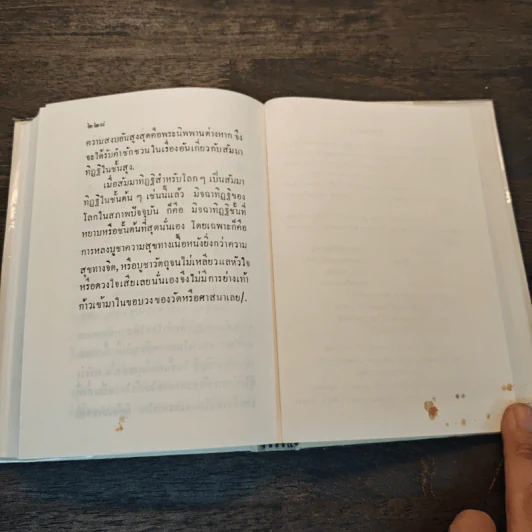 ๒๒๘
ความสงบอันสูงสุดคือพระนิพพานต่างหาก จึง
จะได้รับคำชักชวนในเรื่องอันเกี่ยวกับสัมมา
ทิฏฐิในชั้นสูง.
เมื่อสัมมาทิฏฐิสำหรับโลก ๆ เป็นสัมมา
ทิฏฐิในชั้นต้น ๆ เช่นนี้แล้ว มิจฉาทิฏฐิของ
โลกในสภาพปัจจุบัน ก็คือ มิจฉาทิฏฐิชั้นที่
หยาบหรือชั้นต้นที่สุดนั่นเอง โดยเฉพาะก็คือ
การหลงบูชาความสุขทางเนื้อหนังยิ่งกว่าความ
สุขทางจิต, หรือบูชาวัตถุจนไม่เหลียวแลหัวใจ
หรือดวงใจเสียเลยนั่นเอง จึงไม่มีการย่างเท้า
ก้าวเข้ามาในขอบวงของวัดหรือศาสนาเลย/.